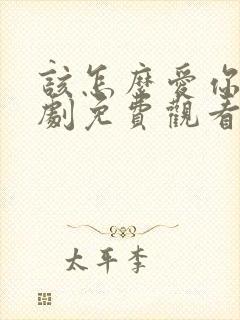 該怎麼愛你
劇免費觀看
太平李